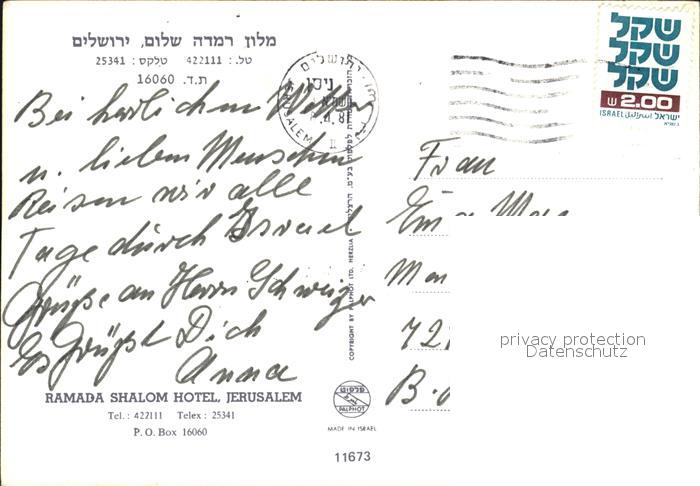 מלון רמדה שלום, ירושלים
טל.: 422111 טלקס: 25341
ת.ד. 16060
Bei herlichem Wetter
u. lieben Menschen
Reisen wir alle
Tage durch Israel
Grüße an Herrn Schweizer
Es Grüßt Dich
Anna
RAMADA SHALOM HOTEL, JERUSALEM
Tel.: 422111 Telex: 25341
P.O. Box 16060
ירושלים
ניסן
JERUSALEM
COPYRIGHT BY PALPHOT LTD. HERZLIA
פלפוט
PALPHOT
MADE IN ISRAEL
11673
שקל
שקל
שקל
ש 2.00
ISRAEL اسرائيل ישראל
Frau
72
B.
privacy protection
Datenschutz